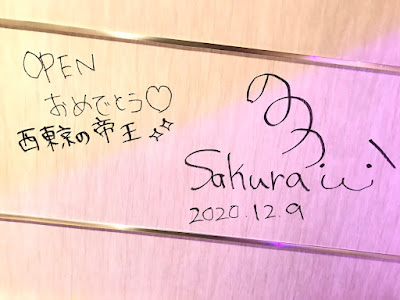 OPEN
おめでとう♡
西東京の帝王
Sakura
2020.12.9